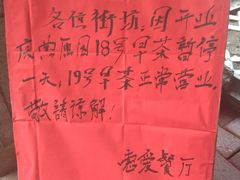 各位街坊,因开业
庆典原因18号早茶暂停
一天,19号早茶正常营业.
敬請谅解!
恋爱餐厅